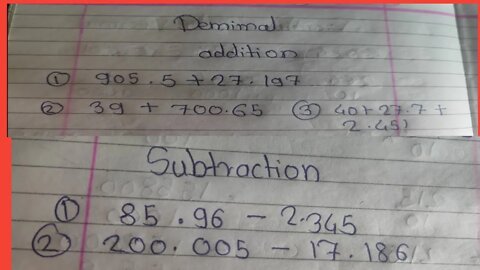 Demimal
addition
① 905.5 + 27.197
② 39 + 700.65 ③ 40 + 27.7 +
2.451
Subtraction
① 85.96 - 2.345
② 200.005 - 17.186